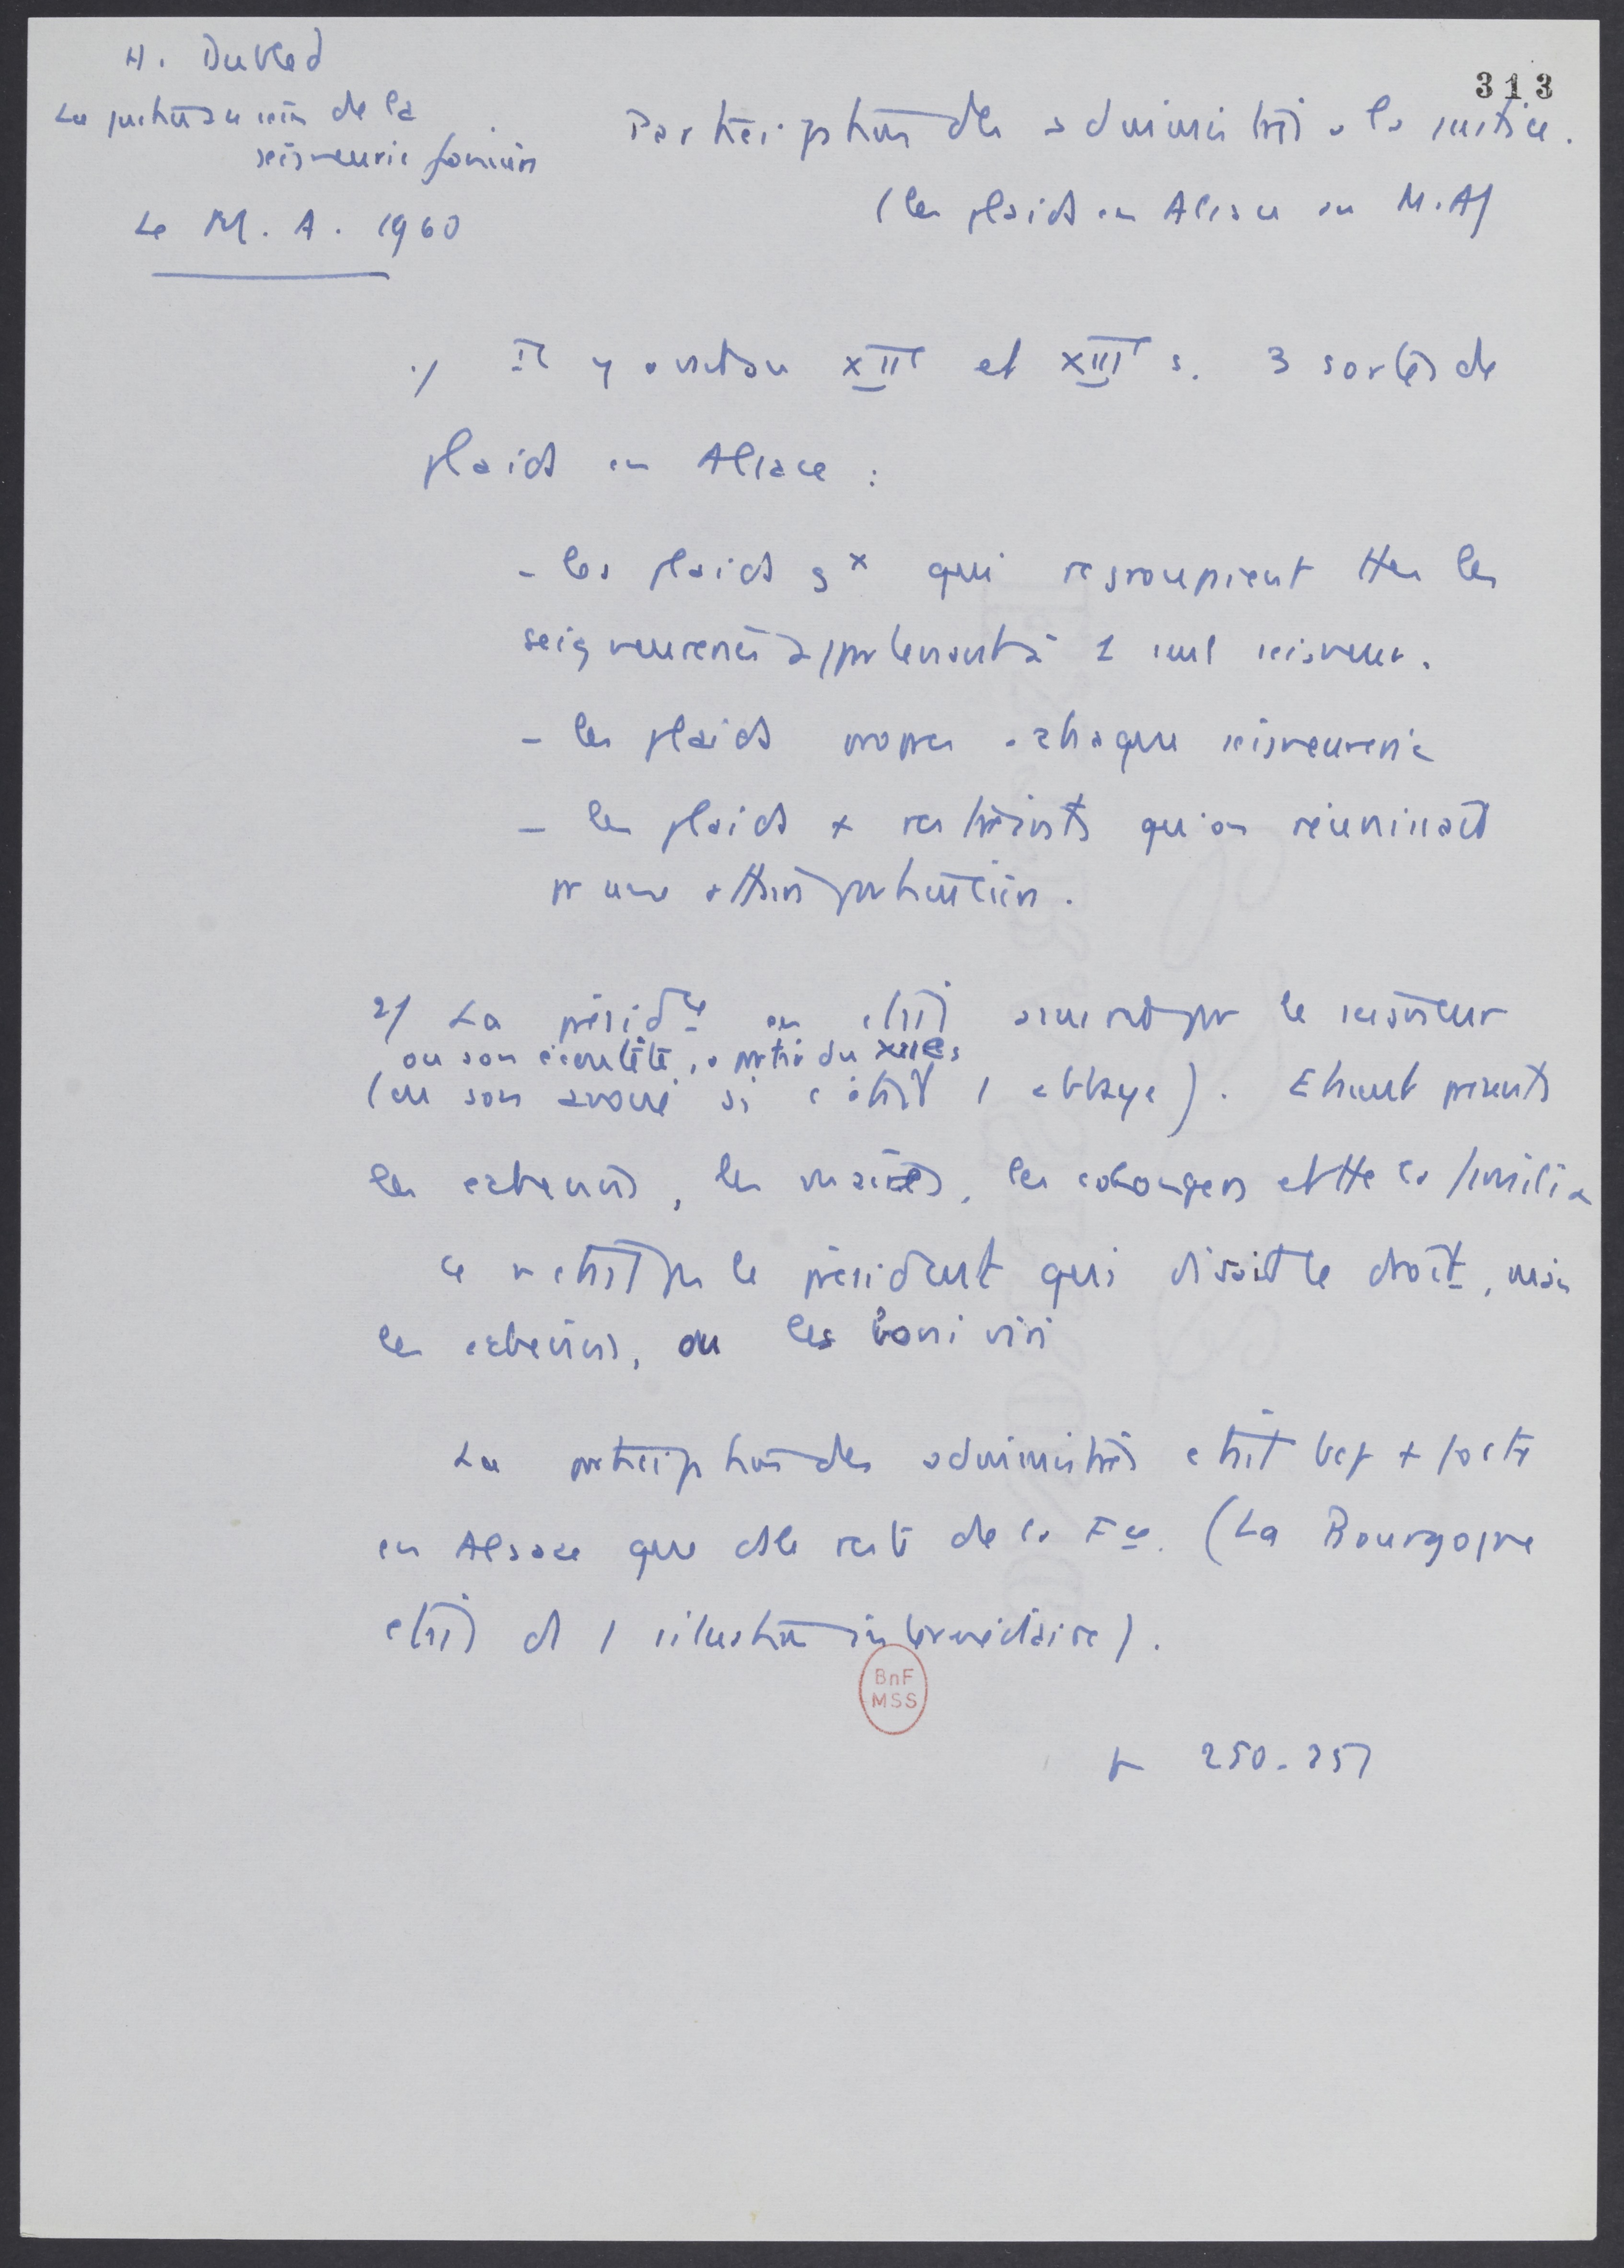 H. Dubled
La justice au sein de la
seigneurie foncière
Le M. A. 1960
313
Participation des administrés à la justice.
(les plaids en Alsace au M.A)
1/ Il y avait au XIIe et XIIIe s. 3 sortes de
plaids en Alsace :
- les plaids gx qui regroupaient ttes les
seigneuries appartenant à 1 seul seigneur.
- les plaids propres à chaque seigneurie
- les plaids + restreints qu'on réunissait
pr une affaire particulière.
2/ La présidce en était assurée par le seigneur
ou son écoutète, à partir du XIIIe s
(ou son avoué si c'était 1 abbaye). Etaient présents
les échevins, les maires, les colongers et tte la familia
ce n'était pas le président qui disait le droit, mais
les échevins, ou les boni viri
La participation des administrés était bcp + forte
en Alsace que ds le reste de la Fce. (La Bourgogne
était ds 1 situation intermédiaire).
BnF
MSS
250-257